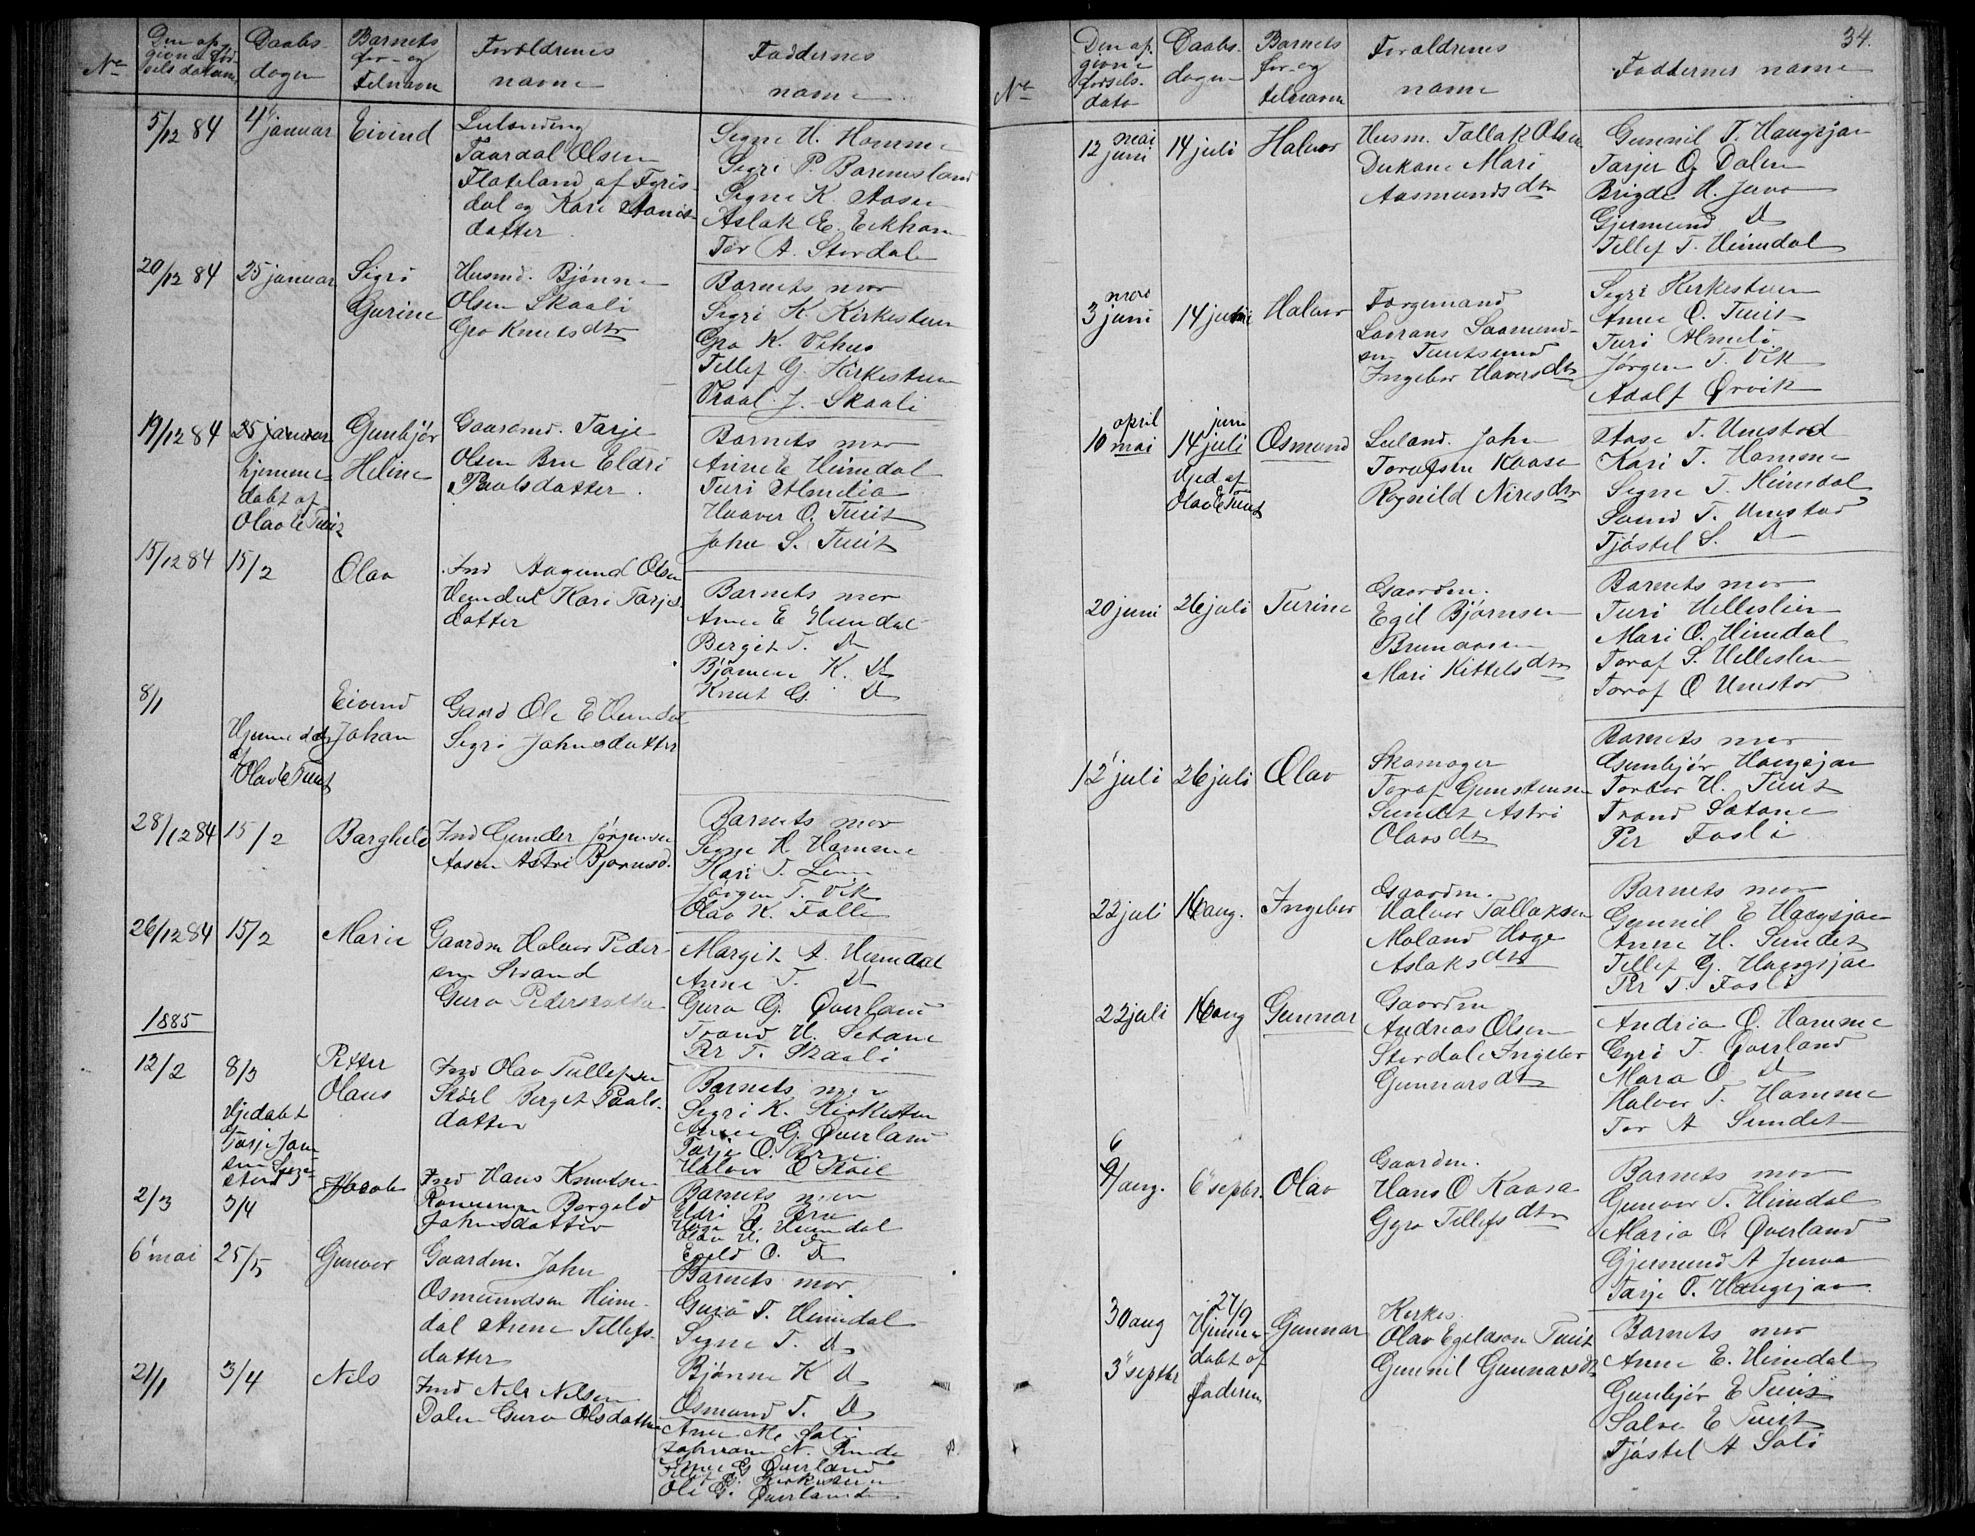 No
Den op-
givne fød-
sels datum
Daabs-
dagen
Barnets
for- og
tilnavn
Forældrenes
navne
Faddernes
navne
5/12 84
4 januar
Eivind
Taardal Olsen
Flateland af Fyris-
dal og Kari
datter
Signe H. Homme
Sigri P. Barmesland
Signe K. Aasen
Aslak E. Eikhom
Tor A. Stordal
20/12 84
25 januar
Sigri
Gurine
Husmd. Bjønn
Olsen Skaali
Gro Knutsdtr
Barnets mor
Sigri K Kirkesteen
Gro K. Vehus
Tellef G. Kirkesteen
Vraal J. Skaali
19/12 84
25 januar
hjemme-
døbt af
Olav E Tveit
Gunbjør
Heline
Gaardmd. Tarje
Olsen Bru Eldri
Paalsdatter.
Barnets mor
Anne E Heimdal
Turi
Haaver O. Tveit
John S. Tveit
15/12 84
15/2
Olav
Ind Aagund Olsen
Heimdal Kari Tarjes-
datter
Barnets mor
Anne E Heimdal
Bergit T. Do
Bjønne K. Do
Knut G. Do
8/1
Hjemmedøbt
af
Olav E Tveit
Eivind
Johan
Gaard Ole E Heimdal
Sigri Johnsdatter
28/12 84
15/2
Barghild
Ind Gunder Jørgensen
Aasen Astri Bjørnsd.
Barnets mor
Signe H. Homme
Kari T.
Jørgen T. Vik
Olav K. Falle
26/12 84
15/2
Marie
Gaardm Halvor Peder-
sen Strand
Guro Pedersdatter
Margit A. Heimdal
Anne T. Do
Guro G. Øverland
Trond H. Setane
Per T. Skaali
1885
12/2
8/3
Hjedøbt
af
Tarje
Petter
Olaus
Ind Olav Tellefsen
Bergit Paals-
datter
Barnets mor
Sigri K. Kirkesteen
Anne G. Øverland
Tarje O. Bru
Halvor O
2/3
3/4
Jacob
Ind Hans Knutsen
Bergild
Johnsdatter
Barnets mor
Eldri P. Bru
O. Heimdal
Olav H. Do
Egeld O. Do
6 mai
25/5
Gunvor
Gaardm. John
Osmundsen Heim-
dal Anne Tellefs-
datter
Barnets mor
Guro T. Heimdal
Signe T. Do
Bjønne K Do
Osmund T. Do
21/1
3/4
Nils
Ind Nils Nilsen
Dalen Guro Olsdatter
Anne
Anne G Øverland
Tellef G. Kirkesteen
Ole G. Øverland
34.
No
Den op-
givne
fødsels-
dato
Daabs-
dagen
Barnets
for- og
tilnavn
Forældrenes
navne
Faddernes navne
mai
12 juni
14 juli
Halvor
Husm. Tallak Olsen
Dukane Mari
Aasmundsdtr
Gunnil T. Haugsjaa
Tarjer O. Dalen
Brigde H. Juva
Gjermund Do
Tellef T. Heimdal
mai
3 juni
14 juni
Halvor
Færgemand
Lavrans Saamund-
sen Tveitsund
Ingebor Haversdtr
Sigri Kirkesteen
Anne O. Tveit
Turi
Jørgen T. Vik
Adolf Ørvik
april
10 mai
juni
14 juli
Hjed af
Olav E Tveit
Osmund
Leiland. John
Torafsen Kaasa
Rognild Nirisdtr
Aase T. Umstad
Kari T. Homme
Signe T. Heimdal
Svend T. Umstad
Tjøstel S. Do
20 juni
26 juli
Turine
Gaardm.
Egil Bjørnsen
Brunaasen
Mari Kittelsdtr
Barnets mor
Turi Helleslien
Mari O. Heimdal
Toraf S. Helleslien
Toraf O Umstad
12 juli
26 juli
Olav
Skomager
Toraf Gunstensen
Sundet Astri
Olavsdtr
Barnets mor
Gunbjør Haugsjaa
Torbor H. Tveit
Trond Setane
Per Fosli
22 juli
16 aug.
Ingebor
Gaardm.
Halvor Tallaksen
Moland Hoge
Aslaksdtr
Barnets mor
Gunnil E Haugsjaa
Anne H. Sundet
Tellef G. Haugsjaa
Per T. Fosli
22 juli
16 aug
Gunnar
Gaardm
Andreas Olsen
Stordal Ingebor
Gunnarsdtr
Andrea O. Homme
Gyri T. Øverland
Mara O Do
Halvor T. Homme
Tor A Sundet
6
9/ aug.
6 septbr.
Olav
Gaardm.
Hans O Kaasa
Gyro Tellefsdtr
Barnets mor
Gunvor T. Heimdal
Maria O. Øverland
Gjermund A Juva
Tarje O. Haugsjaa
30 aug
3 septbr
27/9
Hjemme-
døbt af
faderen
Gunnar
Kirkes.
Olav Egeldsen Tveit
Gunnil Gunnarsdtr
Barnets mor
Anne E. Heimdal
Gunbjør E Tveit
Salve E Tveit
Tjøstel A Soli